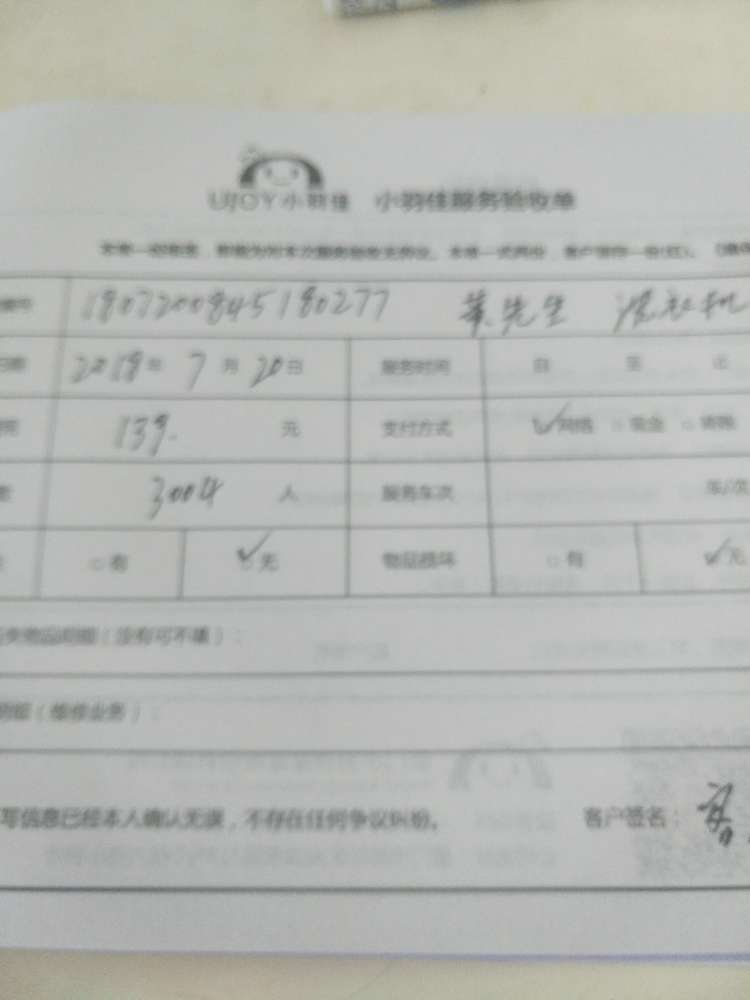 UJOY小羽佳 小羽佳服务验收单
编号 1807200845180277 先生 洗衣机
日期 2018年 7月 20日 服务时间 自 至 止
139. 元 支付方式 ✓网络 □现金 □转账
3004 人 服务车次 车/次
□有 ✓无 物品损坏 □有 ✓无
失物品明细(没有可不填):
明细(维修业务):
写信息已经本人确认无误,不存在任何争议纠纷。 客户签名: